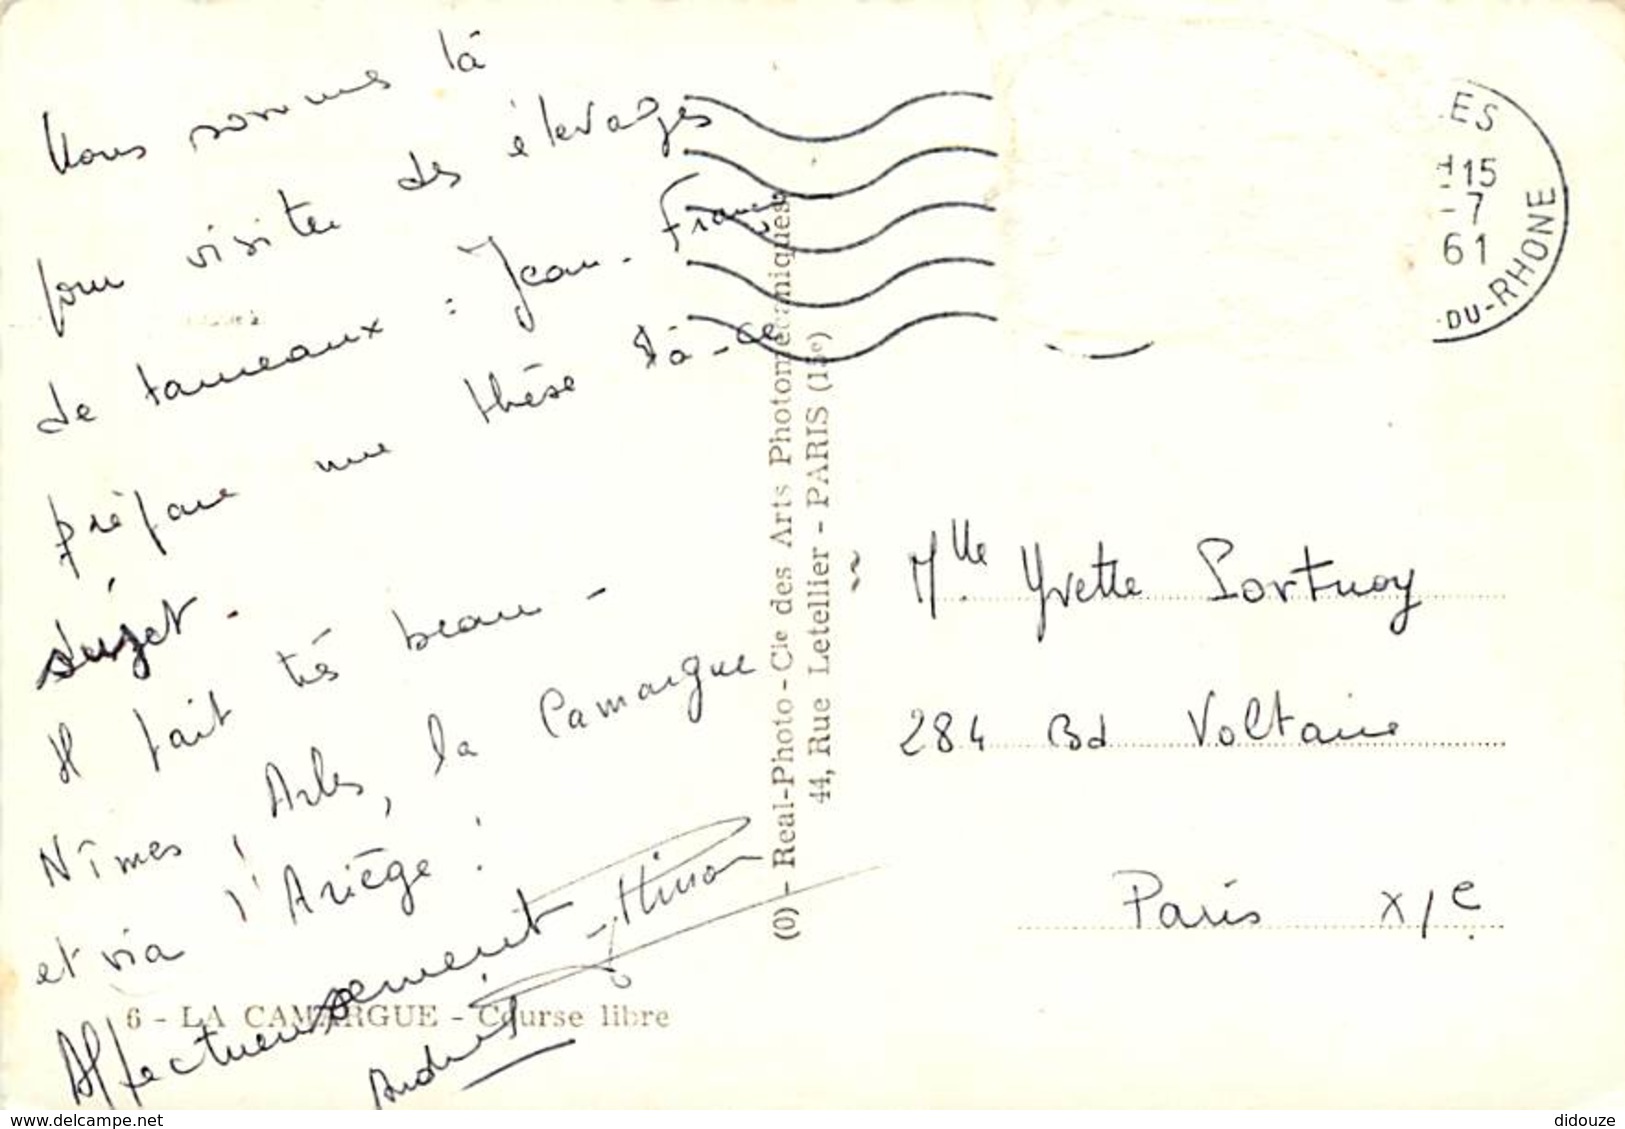 Nous sommes là
pour visiter des élevages
de taureaux : Jean-François
prépare une thèse là-ce
sujet.
Il fait très beau -
Nîmes, Arles, la Camargue
et via l'Ariège !
Affectueusement
6 - LA CAMARGUE - Course libre
(0) - Real-Photo-Cie des Arts Photomécaniques
44, Rue Letellier - PARIS (15e)
ES
15
-7
61
DU-RHONE
Mlle Yvette Portnoy
284 Bd Voltaire
Paris XIe
delcampe.net
didouze